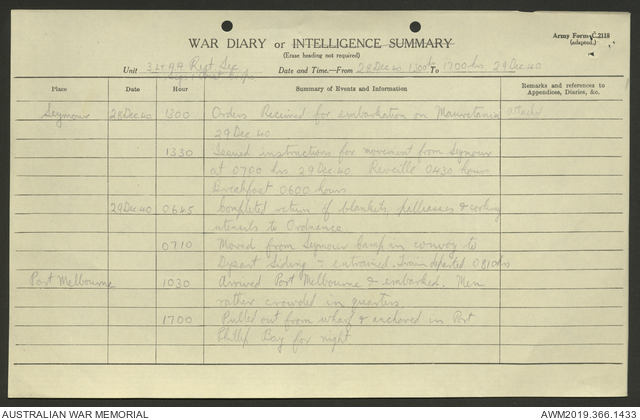 Army Form C.2118
(adapted.)
WAR DIARY or INTELLIGENCE SUMMARY
(Erase heading not required)
Unit 3 Lt AA Regt Sec Date and Time.—From 28 Dec 40 1300 To 1700 hrs 29 Dec 40
Place Date Hour Summary of Events and Information Remarks and references to Appendices, Diaries, &c.
Seymour 28 Dec 40 1300 Orders Received for embarkation on Mauretania attached
29 Dec 40
1330 Issued instructions for movement from Seymour
at 0700 hrs 29 Dec 40. Reveille 0430 hours
Breakfast 0600 hours
29 Dec 40 0645 Completed return of blankets, palliasses & cooking
utensils to Ordnance
0710 Moved from Seymour Camp in convoy to
Dysart Siding & entrained. Train departed 0810 hrs
Port Melbourne 1030 Arrived Port Melbourne & embarked. Men
rather crowded in quarters.
1700 Pulled out from wharf & anchored in Port
Phillip Bay for night
AUSTRALIAN WAR MEMORIAL AWM2019.366.1433